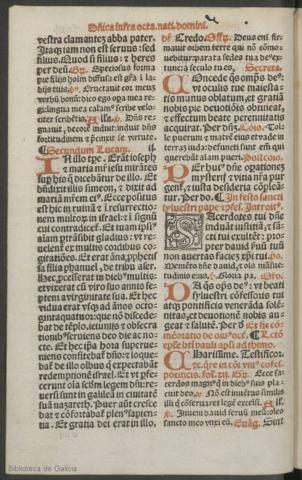 Dñica infra octa. nati. domini.
vestra clamantes abba pater.
Itaqz iam non est seruus: sed
filius. Quod si filius: z heres
per deū. Speciosus forma
pre filijs hoim diffusa est grā ĩ la-
bijs tuis. Eructauit cor meuz
verbū bonū: dico ego opa mea re-
gi: lingua mea calam⁹ scribe velo-
citer scribẽtis. Alla. Dñs re-
gnauit, decorē induit: induit dñs
fortitudinem z precinxit se virtute.
Secundum Lucam. ij.
IN illo tpe. Erāt ioseph
z maria mr̄ iesu mirātes
sup his q̃ dicebant̃ de illo. Et
bn̄dixit illis simeon, z dixit ad
mariā mr̄em ei⁹. Ecce positus
est hic in ruinā z ĩ resurrectio-
nem multoꝝ in israel: z ĩ signū
cui contradicet̃. Et tuam ip̃i⁹
aīam ptrāsibit gladius: vt re-
uelent̃ ex multis cordibus co-
gitatiões. Et erat āna, pphetis-
sa filia phanuel, de tribu aser.
Hec, pcesserat in dieb⁹ multis:
et vixerat cū viro suo annis se-
ptem a virginitate sua. Et hec
vidua erat vsqz ad annos octo-
ginta quattuor: que nō discede-
bat de tēplo, ieiunijs z obsecra-
tionib⁹ seruiens deo die ac no-
cte. Et hec ip̃a hora superue-
niens confitebat̃ dño: z loque-
bat̃ de illo oībus q̃ expectabant
redemptionē israel. Et vt pfe-
cerunt oīa scdm legem dñi: re-
uersi sunt in galileā in ciuitatē
suā nazareth. Puer aūt cresce-
bat z cōfortabat̃ plen⁹ sapien-
tia. Et gratia dei erat in illo.
Credo. Offꝫ. Deus eni fir-
mauit orbem terre qui nō cōmo-
uebitur: parata sedes tua de⁹ ex tunc
a seculo tu es. Secreta.
COncede q̃s omp̃s de⁹:
vt oculis tue maiesta-
tis munus oblatum, et gratiā
nobis pie deuotiõis obtineat,
z effectum beate perennitatis
acquirat. Per dñȝ. Cōio. Tol-
le puerum z matrē eius et vade in
terrā iuda: defuncti sunt em̄ qui
querebāt aīam pueri. Postcōio.
PEr hui⁹ dñe operationeȝ
mysterij z vitia nr̄a pur-
gent̃, z iusta desideria cōplea-
tur. Per dñ. In festo sancti
syluestri pape z p̄fes. Introit⁹.
SAcerdotes tui dñe
induāt iusticiā, z sā-
cti tui exultēt: pro-
pter dauid fuū tuū
non auertas faciez xp̄i tui. p̄s.
Memēto dñe dauid, z ois māsue-
tudinis eius. Gloria pa. Oro.
DA q̃s op̃s de⁹: vt beati
syluestri cōfessoris tui
atqz pontificis veneāda sole-
nitas, et deuotionē nobis au-
geat z salutē. Per dñ
CHarissime. Testificor.
Ecce sa-
cerdos magn⁹ q̃ in dieb⁹ suis pla-
cuit deo. Nō est inuentus similis
illi q̃ cōseruaret legē excelsi. Alla.
Inueni dauid seruū meū: oleo
sancto meo vnxi eū. Euāg⁹. Sint
Biblioteca de Galicia